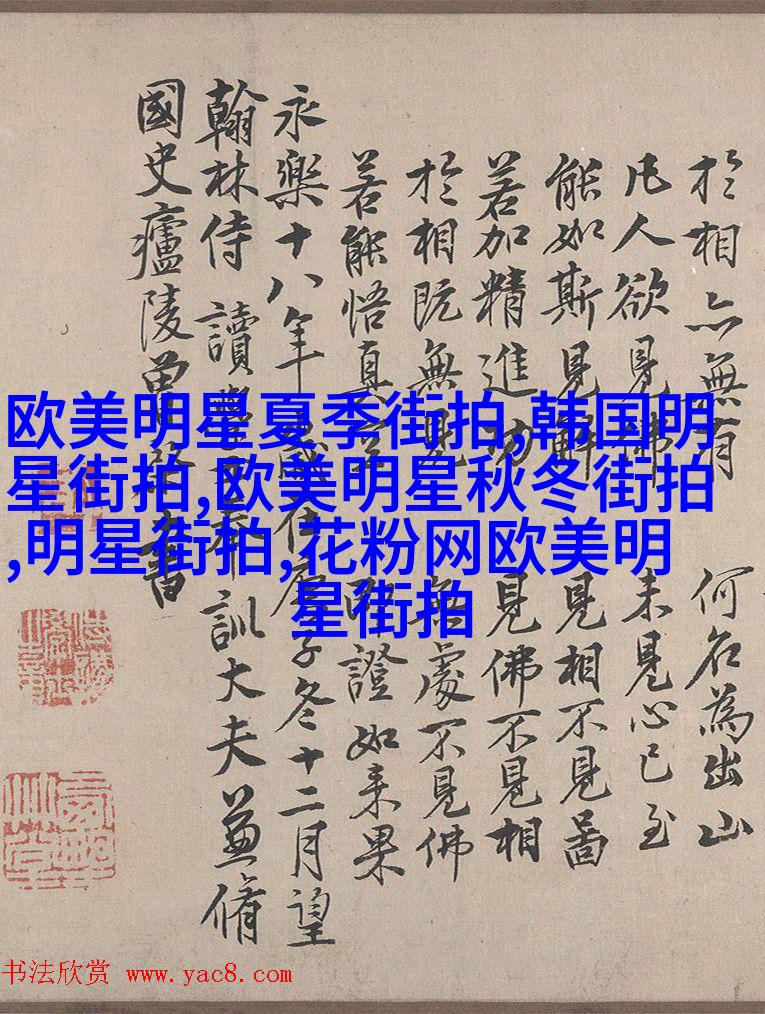 於相亦無有 何名為出山
凡人欲見佛 未見心已至
能如斯見解 見相不見啚
若加精進功 見佛不見相
於相既無見 無處不見佛
若能悟真空 即證如来果
永樂十八年歲在庚子冬十二月望
翰林侍讀學士奉訓大夫兼脩
國史廬陵曾棨書
欧美明星夏季街拍,韩国明
星街拍,欧美明星秋冬街拍
,明星街拍,花粉网欧美明
星街拍
书法欣赏 www.yac8.com